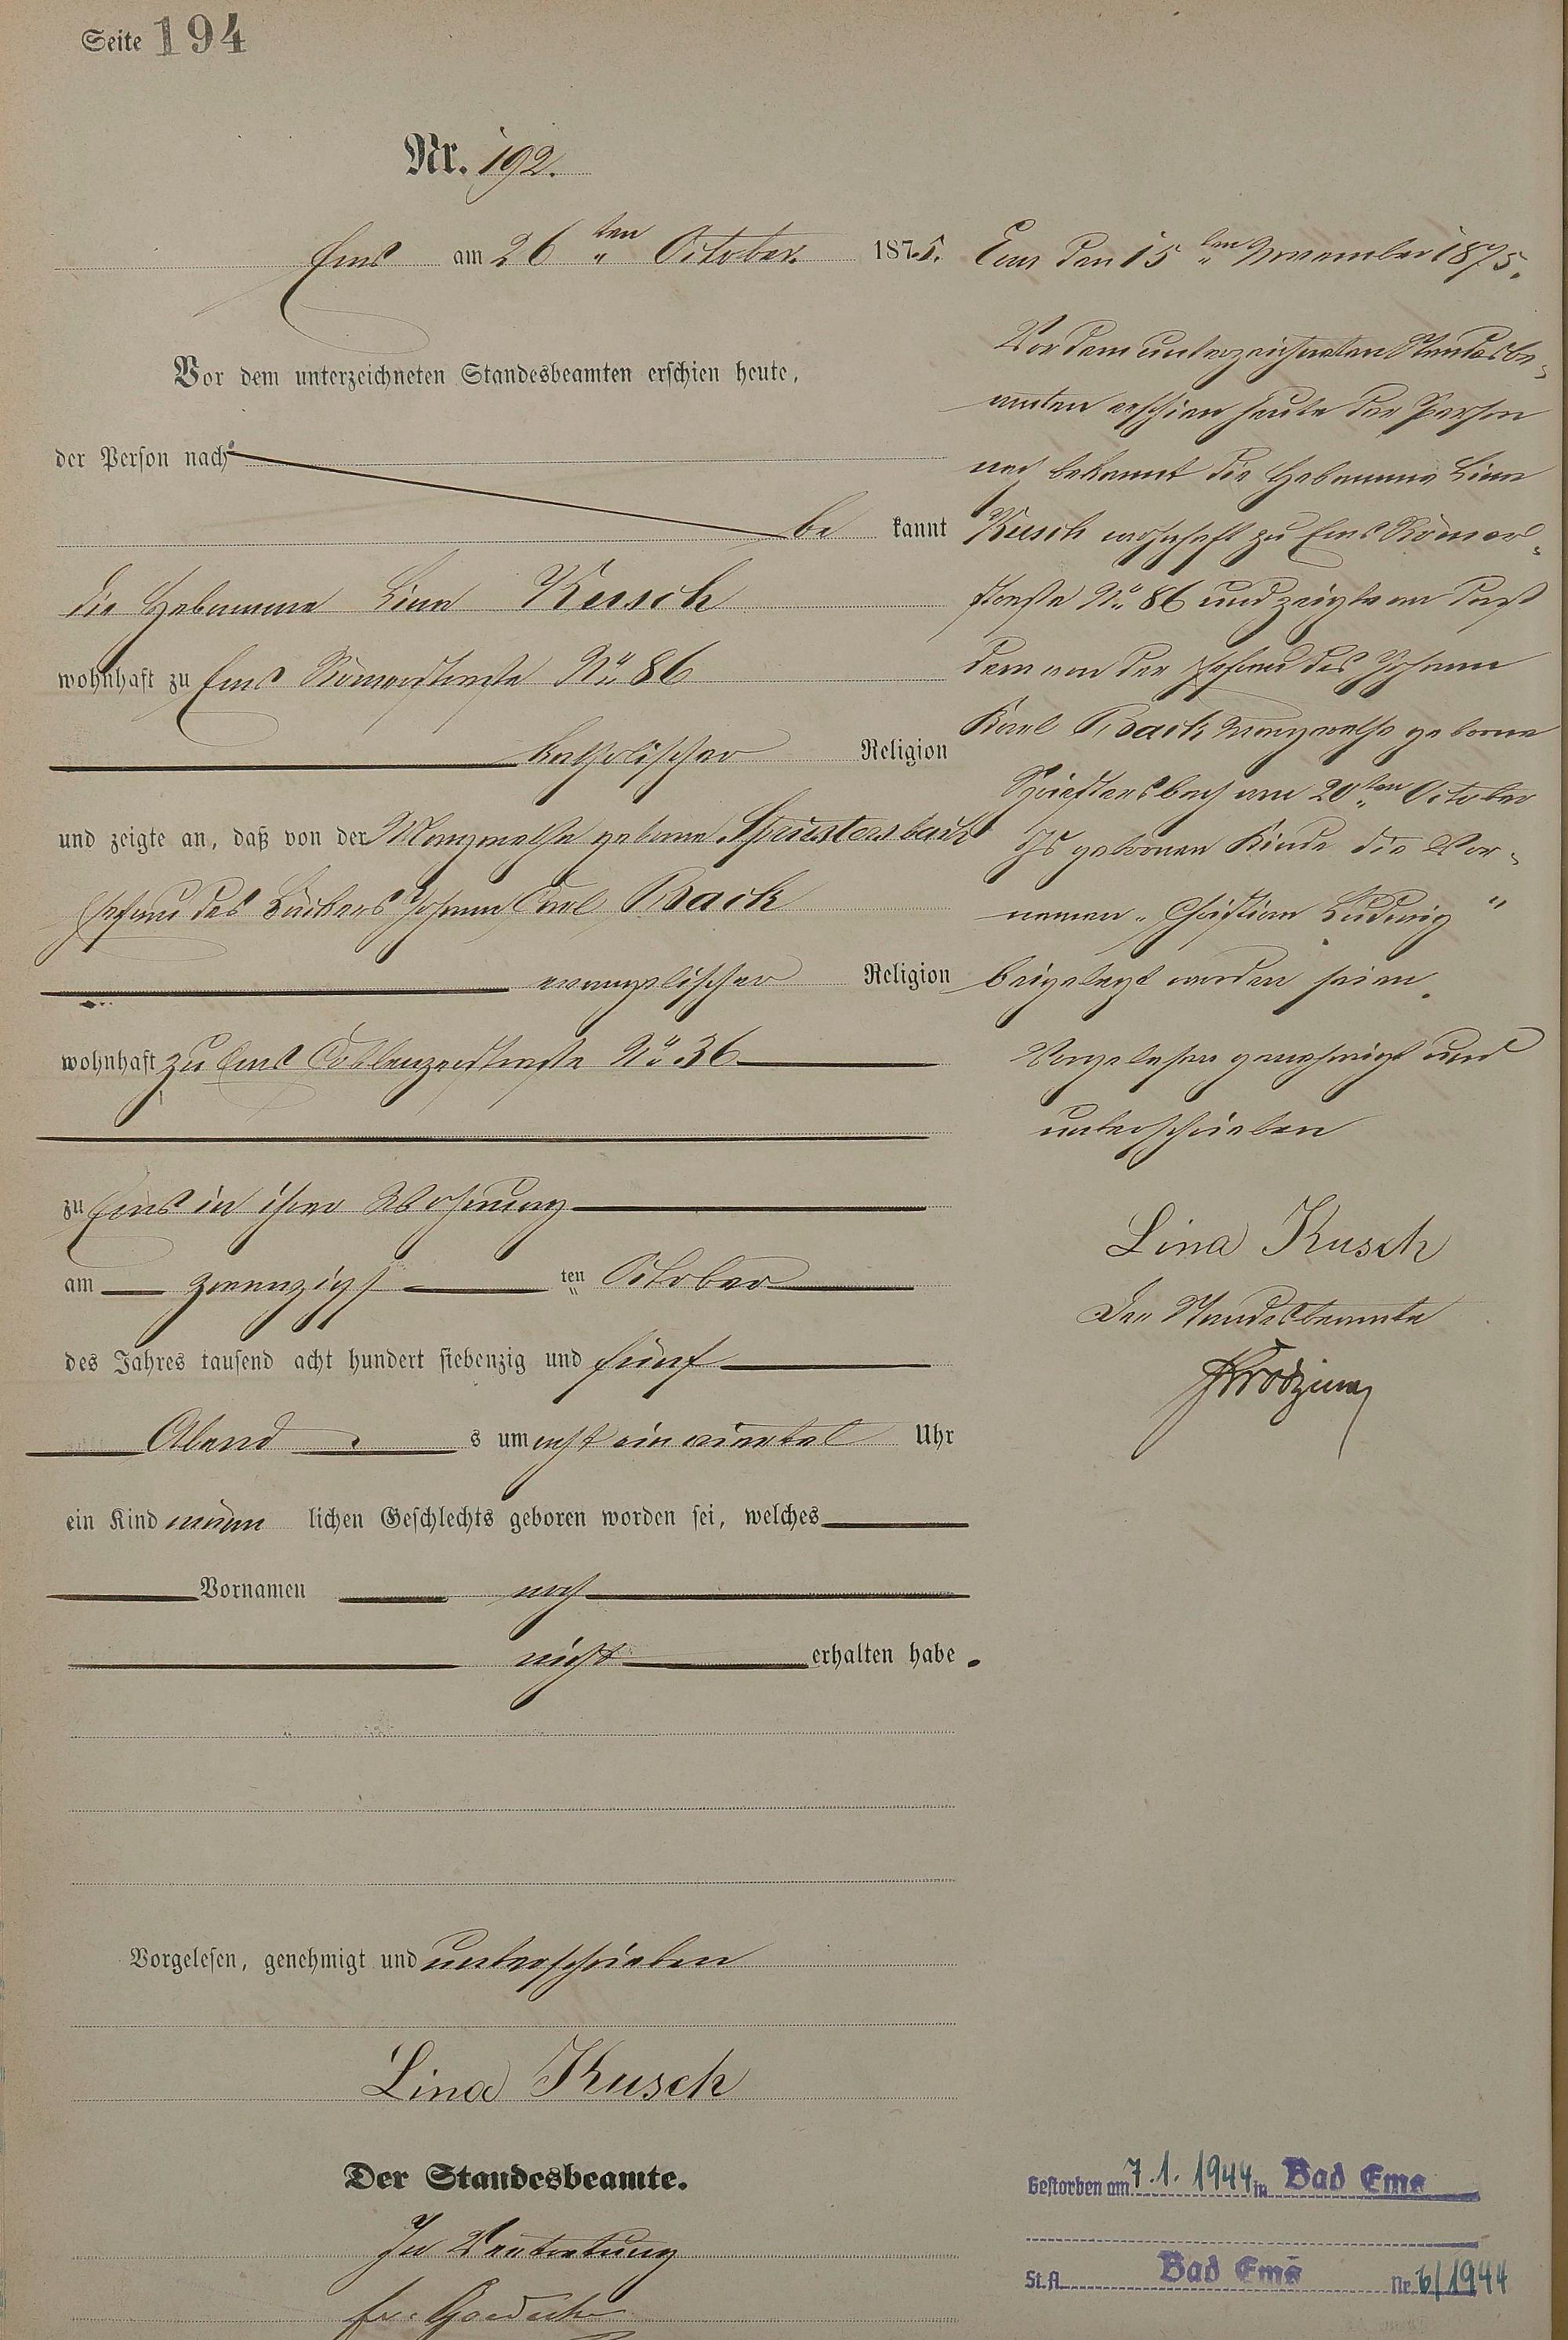 Seite 194
Nr. 192.
Ems am 26ten October 1875.
Vor dem unterzeichneten Standesbeamten erschien heute,
der Person nach
be kannt
die Hebamme Lina Kusch
wohnhaft zu Ems Römerstraße No 86
katholischer Religion
und zeigte an, daß von der Margarethe geborne Spriestersbach
Ehefrau des Bäckers Johann Carl Back
evangelischer Religion
wohnhaft zu Ems Coblenzerstraße No 36
zu Ems in ihrer Wohnung
am zwanzigsten October
des Jahres tausend acht hundert siebenzig und fünf
Abend s um acht ein viertel Uhr
ein Kind männ lichen Geschlechts geboren worden sei, welches
Vornamen noch
nicht erhalten habe.
Vorgelesen, genehmigt und unterschrieben
Lina Kusch
Der Standesbeamte.
In Vertretung
Ems den 15ten November 1875.
Vor dem unterzeichneten Standesbe-
amten erschien heute der Person
nach bekannt die Hebamme Lina
Kusch wohnhaft zu Ems Römer-
straße No 86 und zeigte an daß
dem von der Ehefrau des Johann
Karl Back Margarethe geborne
Spriestersbach am 20ten October
Js geborenen Kinde die Vor-
namen „Christian Ludwig"
beigelegt worden seien.
Vorgelesen genehmigt und
unterschrieben
Lina Kusch
Der Standesbeamte
Gestorben am 7.1.1944 in Bad Ems
St.A. Bad Ems Nr. 6/1944